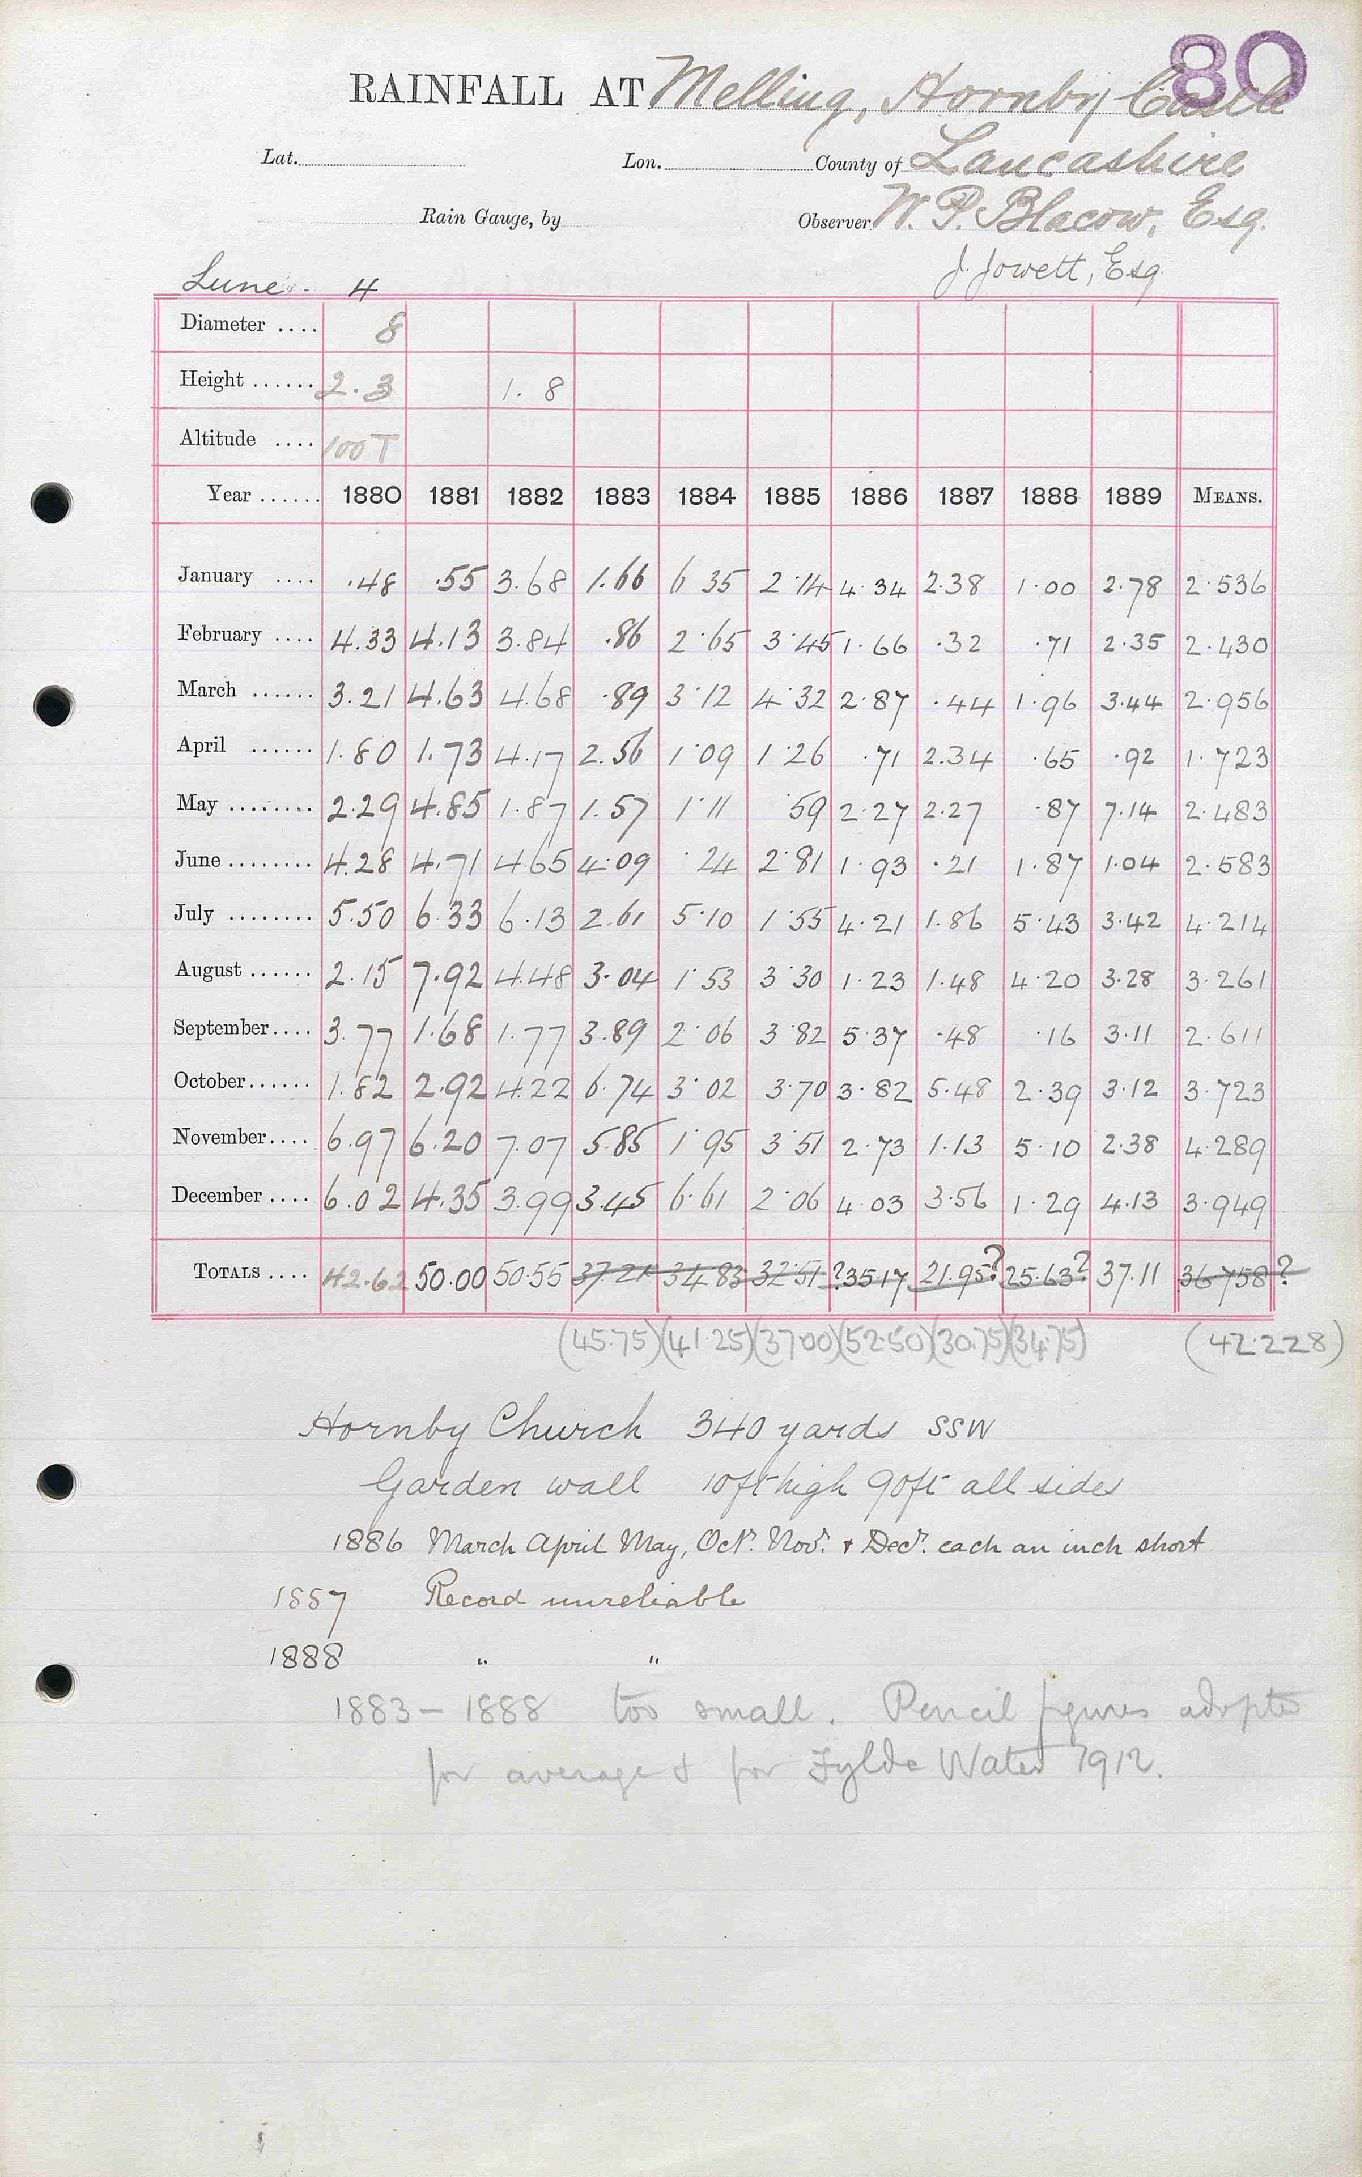 80
RAINFALL AT Melling, Hornby Castle
Lat. Lon. County of Lancashire
Rain Gauge, by Observer W. P. Blacow, Esq.
J. Jowett, Esq
Lune. 4
Diameter .... 8
Height ...... 2.3 1.8
Altitude .... 100 T
Year ...... 1880 1881 1882 1883 1884 1885 1886 1887 1888 1889 MEANS.
January .... .48 .55 3.68 1.66 6.35 2.14 4.34 2.38 1.00 2.78 2.536
February .... 4.33 4.13 3.84 .86 2.65 3.45 1.66 .32 .71 2.35 2.430
March ...... 3.21 4.63 4.68 .89 3.12 4.32 2.87 .44 1.96 3.44 2.956
April ...... 1.80 1.73 4.17 2.56 1.09 1.26 .71 2.34 .65 .92 1.723
May ........ 2.29 4.85 1.87 1.57 1.11 .59 2.27 2.27 .87 7.14 2.483
June ........ 4.28 4.71 4.65 4.09 .24 2.81 1.93 .21 1.87 1.04 2.583
July ........ 5.50 6.33 6.13 2.61 5.10 1.55 4.21 1.86 5.43 3.42 4.214
August ...... 2.15 7.92 4.48 3.04 1.53 3.30 1.23 1.48 4.20 3.28 3.261
September.... 3.77 1.68 1.77 3.89 2.06 3.82 5.37 .48 .16 3.11 2.611
October...... 1.82 2.92 4.22 6.74 3.02 3.70 3.82 5.48 2.39 3.12 3.723
November.... 6.97 6.20 7.07 5.85 1.95 3.51 2.73 1.13 5.10 2.38 4.289
December .... 6.02 4.35 3.99 3.45 6.61 2.06 4.03 3.56 1.29 4.13 3.949
TOTALS .... 42.62 50.00 50.55 37.21 34.83 32.51 ?35.17 21.95? 25.63? 37.11 36.758?
(45.75) (41.25) (37.00) (52.50) (30.75) (34.75) (42.228)
Hornby Church 340 yards SSW
Garden wall 10ft high 90ft all sides
1886 March April May, Octr. Novr. + Decr. each an inch short
1887 Record unreliable
1888 " "
1883 – 1888 too small. Pencil figures adopted
for average & for Fylde Water 1912.